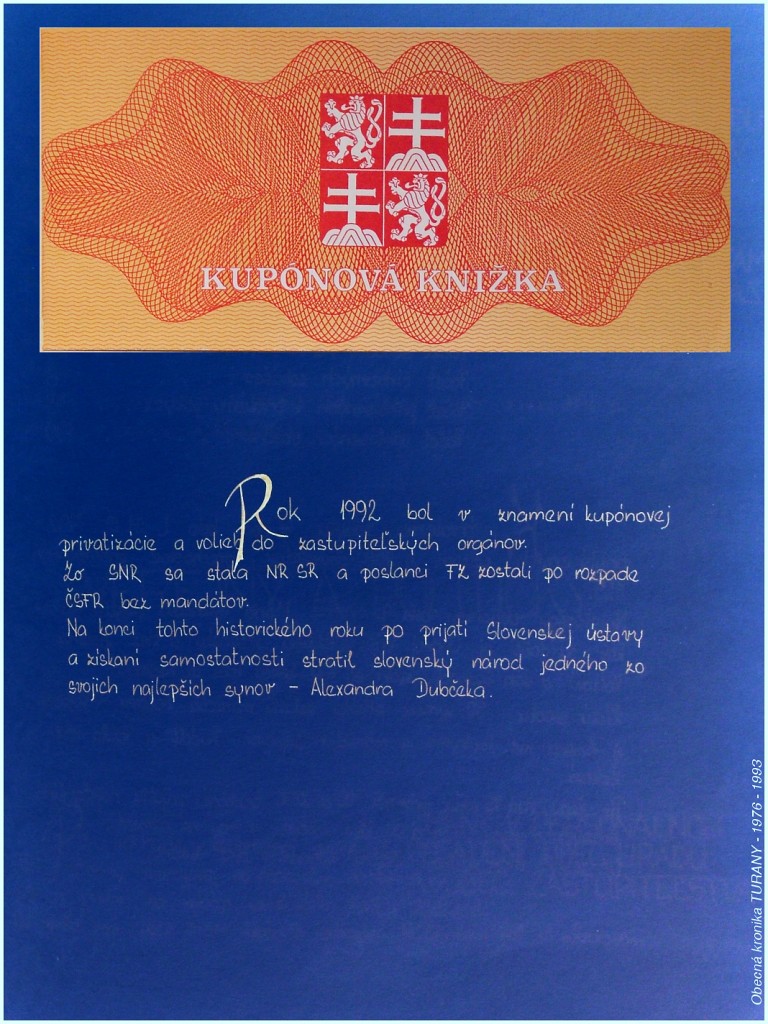 KUPÓNOVÁ KNIŽKA
Rok 1992 bol v znamení kupónovej
privatizácie a volieb do zastupiteľských orgánov.
Zo SNR sa stala NR SR a poslanci FZ zostali po rozpade
ČSFR bez mandátov.
Na konci tohto historického roku po prijatí Slovenskej ústavy
a získaní samostatnosti stratil slovenský národ jedného zo
svojich najlepších synov - Alexandra Dubčeka.
Obecná kronika TURANY - 1976 - 1993